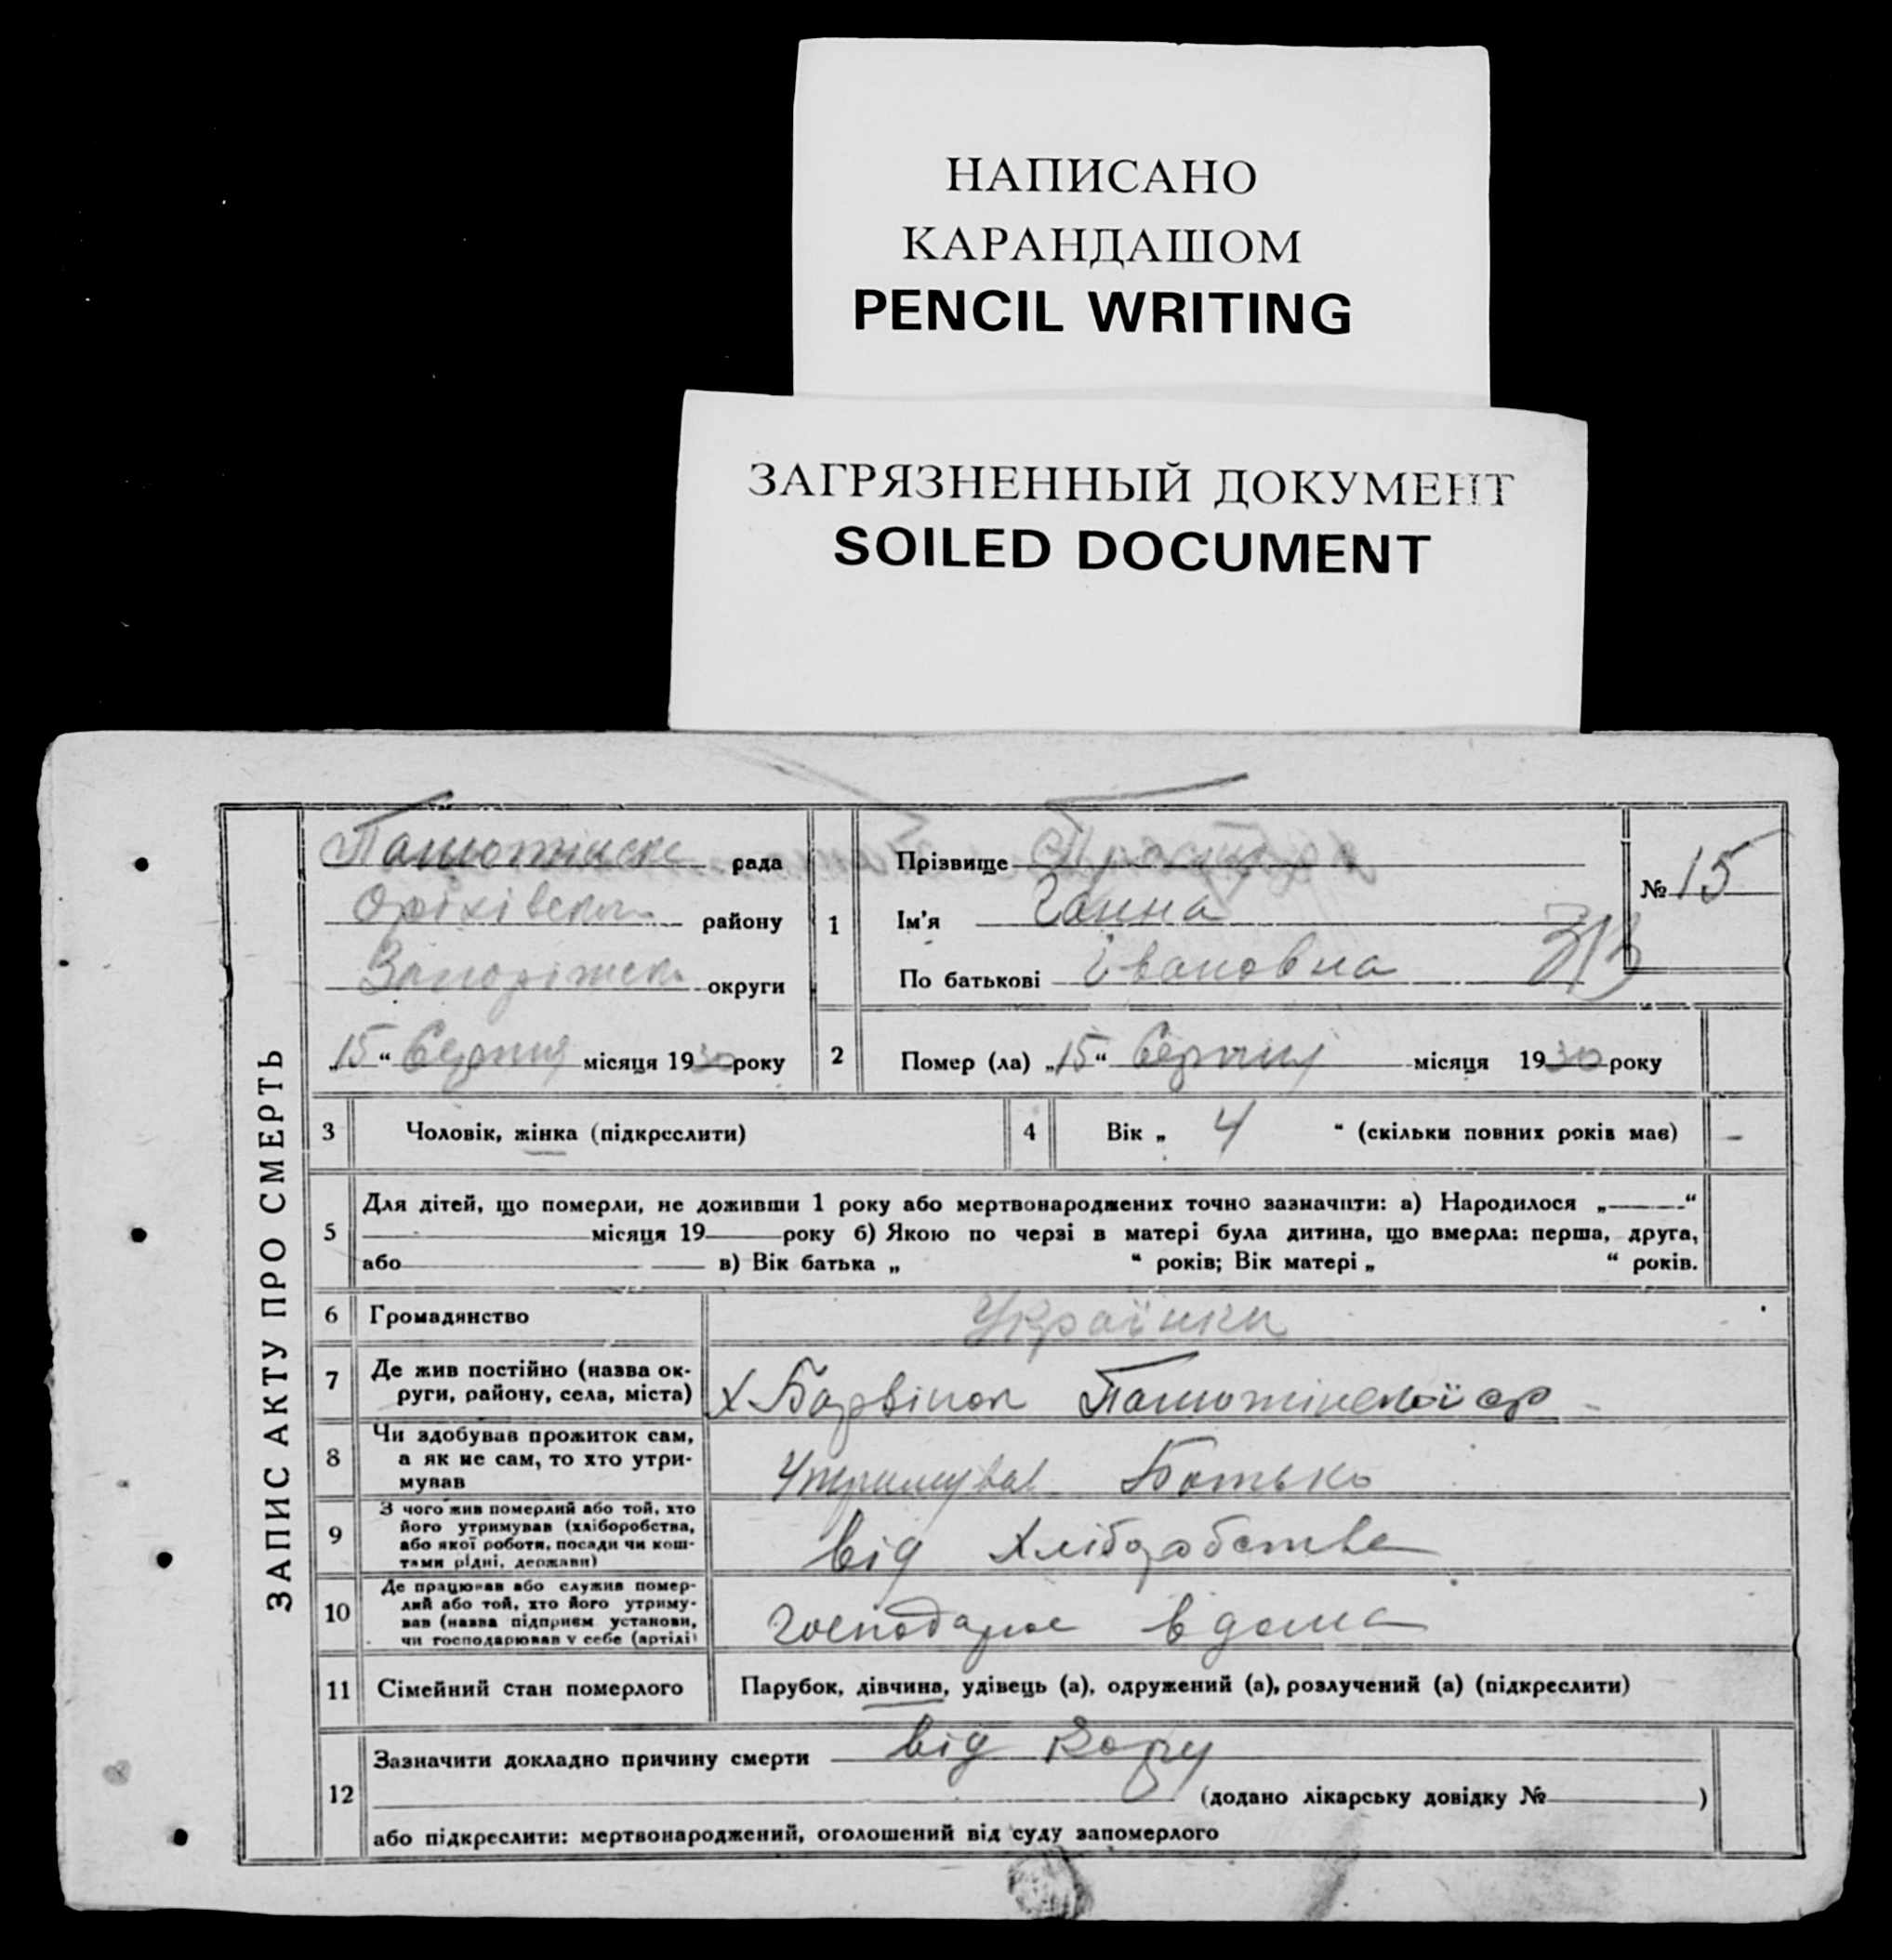 НАПИСАНО
КАРАНДАШОМ
PENCIL WRITING
ЗАГРЯЗНЕННЫЙ ДОКУМЕНТ
SOILED DOCUMENT
ЗАПИС АКТУ ПРО СМЕРТЬ
рада
району
округи
„15“ Серпня місяця 1930 року
1
Прізвище
Ім'я Ганна
По батькові Івановна
№ 15
313
2
Помер (ла) „15“ Серпня місяця 1930 року
3
Чоловік, жінка (підкреслити)
4
Вік „ 4 “ (скільки повних років мав)
-
5
Для дітей, що померли, не доживши 1 року або мертвонароджених точно зазначити: а) Народилося „ “
місяця 19 року б) Якою по черзі в матері була дитина, що вмерла: перша, друга,
або в) Вік батька „ “ років; Вік матері „ “ років.
6
Громадянство
Українка
7
Де жив постійно (назва ок-
руги, району, села, міста)
х Барвінок Панютінської ср
8
Чи здобував прожиток сам,
а як не сам, то хто утри-
мував
Утримував Батько
9
З чого жив померлий або той, хто
його утримував (хліборобства,
або якої роботи, посади чи кош-
тами рідні, держави)
від Хліборобства
10
Де працював або служив помер-
лий або той, хто його утриму-
вав (назва підприєм установи,
чи господарював у себе (артілі)
господарює вдома
11
Сімейний стан померлого
Парубок, дівчина, удівець (а), одружений (а), розлучений (а) (підкреслити)
12
Зазначити докладно причину смерти від кору
(додано лікарську довідку № )
або підкреслити: мертвонароджений, оголошений від суду запомерлого